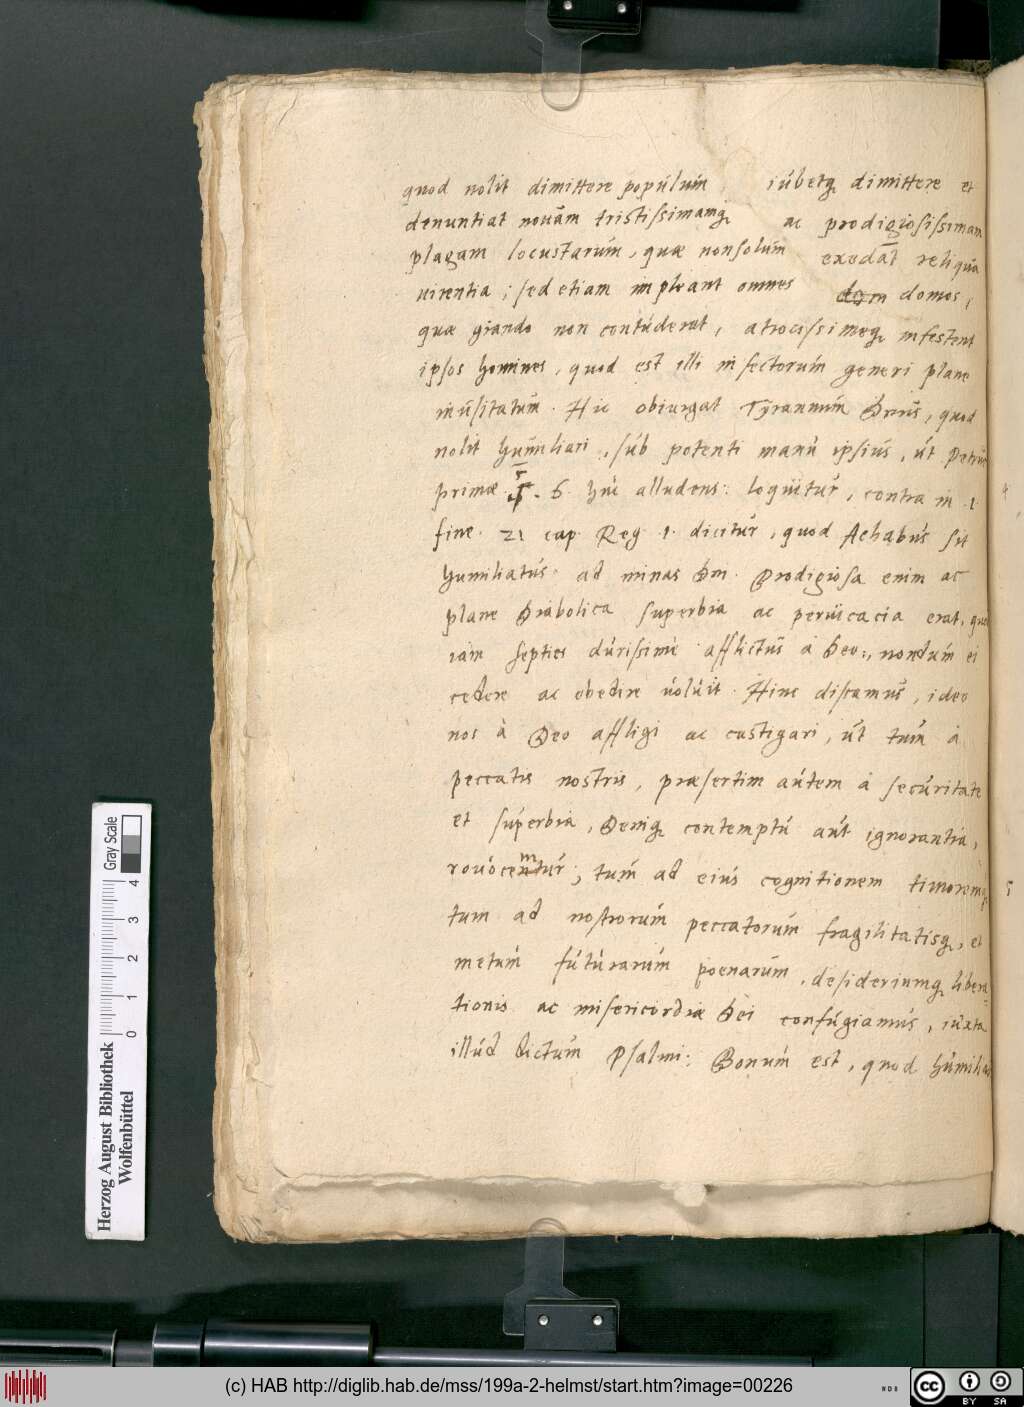 quod nolit dimittere populum, iubetq dimittere et
denuntiat nouam tristissimamq ac prodigiosissimam
plagam locustarum, quae nonsolum exedat reliqua
uirentia; sed etiam impleant omnes dom domos,
quae giando non contuderat, atrocissimeq infestent
ipsos homines, quod est illi insectorum generi plane
inusitatum. Hic obiurgat Tyrannum Deus, quod
nolit humiliari, sub potenti manu ipsius, ut Petrus
primae 5. 6 huc alludens: loquitur, contra in 1
fine 21 cap Reg 1. dicitur, quod Achabus sit
humiliatus ad minas Dm. Prodigiosa enim ac
plane Diabolica superbia ac peruicacia erat, quod
iam septies durissime afflictus a Deo, nondum ei
cedere ac obedire uoluit. Hinc discamus, ideo
nos a Deo affligi ac castigari, ut tum a
peccatis nostris, praesertim autem a securitate
et superbia, Deniq contemptu aut ignorantia,
rouocemtur; tum ad eius cognitionem timoremq
tum ad nostrorum peccatorum fragilitatisq, et
metum futurarum poenarum, desideriumq libera=
tionis ac misericordiae Dei confugiamus, iuxta
illud dictum Psalmi: Bonum est, quod humilias
Herzog August Bibliothek
Wolfenbüttel
0 1 2 3 4
Gray Scale
(c) HAB http://diglib.hab.de/mss/199a-2-helmst/start.htm?image=00226
WDB
cc BY SA